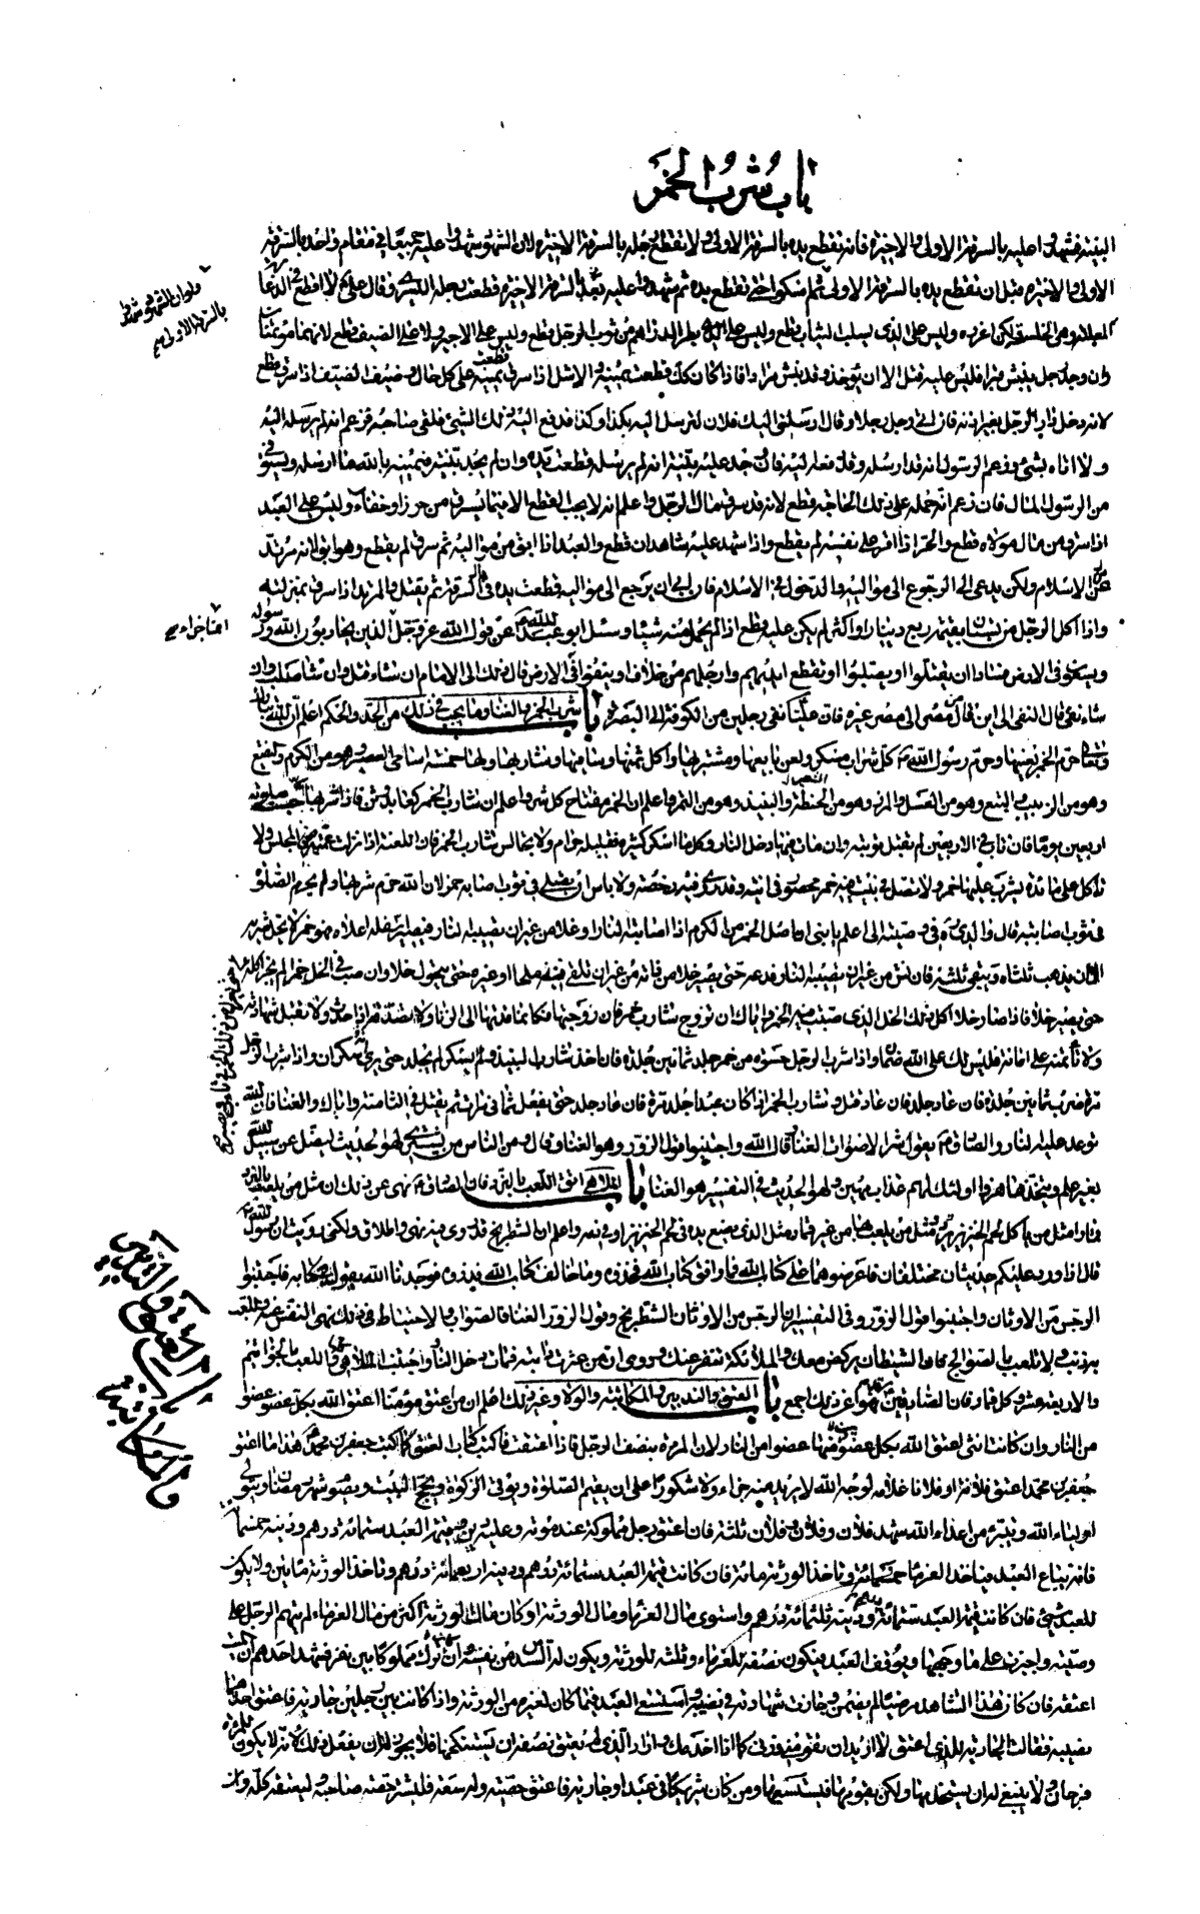 باب شرب الخمر
البينة فشهدوا عليه بالسرقة الاولى والاخيرة فانه تقطع يده بالسرقة الاولى ولا تقطع رجله بالسرقة الاخيرة لان الشهود شهدوا عليه جميعا في مقام واحد بالسرقة
الاولى والاخيرة قبل ان تقطع يده بالسرقة الاولى ثم امسكوا حتى تقطع يده ثم شهدوا عليه بعد بالسرقة الاخيرة قطعت رجله اليسرى وقال علي لا قطع في الدغارة
المعلنة وهي الخلسة ولكن اعزره وليس على الذي يسلب الثياب قطع وليس على الذي يطر الدراهم من ثوب الرجل قطع وليس على الاجير ولا على الضيف قطع لانهما مؤتمنان
وان وجد رجل ينبش قبرا فليس عليه قطع الا ان يؤخذ وقد نبش مرارا فاذا كان كذلك قطعت يمينه والاشل اذا سرق قطعت يمينه على كل حال وضيف الضيف اذا سرق قطع
لانه دخل دار الرجل بغير اذنه فان اتى رجل رجلا وقال ارسلني اليك فلان لترسل اليه بكذا وكذا فدفع اليه ذلك الشيء فلقي صاحبه فزعم انه لم يرسله اليه
ولا اتاه بشيء وزعم الرسول انه قد ارسله وقد دفعه اليه فان وجد عليه بينة انه لم يرسله قطعت يده وان لم يجد بينة فيمينه بالله ما ارسله ويستوفى
من الرسول المال فان زعم انه حمله على ذلك الحاجة قطع لانه قد سرق مال الرجل واعلم انه لا يجب القطع الا فيما يسرق من حرز او خفاء وليس على العبد
اذا سرق من مال مولاه قطع والحر اذا اقر على نفسه لم يقطع واذا شهد عليه شاهدان قطع والعبد اذا ابق من مواليه ثم سرق لم يقطع وهو ابق لانه مرتد
عن الاسلام ولكن يدعى الى الرجوع الى مواليه والدخول في الاسلام فان ابى ان يرجع الى مواليه قطعت يده في السرقة ثم يقتل والمرتد اذا سرق بمنزلته
واذا اكل الرجل من بستان بقيمة ربع دينار او اكثر لم يكن عليه قطع اذا لم يحمل منه شيئا وسئل ابو عبد الله عن قول الله عز وجل الذين يحاربون الله ورسوله
ويسعون في الارض فسادا ان يقتلوا او يصلبوا او تقطع ايديهم وارجلهم من خلاف او ينفوا في الارض قال ذلك الى الامام ان شاء قتل وان شاء صلب وان
شاء نفى قال النفي الى اين قال من مصر الى مصر غيره فان عليا نفى رجلين من الكوفة الى البصرة باب شرب الخمر والغناء وما يجب في ذلك من الحد والحكم اعلم ان الله تبارك
وتعالى حرم الخمر بعينها وحرم رسول الله كل شراب مسكر ولعن بايعها ومشتريها واكل ثمنها وساقيها وشاربها ولها خمسة اسامي العصير وهو من الكرم والنقيع
وهو من الزبيب والبتع وهو من العسل والمزر وهو من الحنطة والنبيذ وهو من التمر واعلم ان الخمر مفتاح كل شر واعلم ان شارب الخمر كعابد وثن فاذا شربها حبست صلوته
اربعين يوما فان تاب في الاربعين لم تقبل توبته وان مات فيها دخل النار وكل ما اسكر كثيره فقليله حرام ولا تجالس شارب الخمر فان اللعنة اذا نزلت عمت من في المجلس ولا
تاكل على مائدة يشرب عليها خمر ولا تصل في بيت فيه خمر محصور في انية وقد روي فيه رخصة ولا باس ان تصلي في ثوب اصابه خمر لان الله حرم شربها ولم يحرم الصلوة
في ثوب اصابته قال والدي في وصيته الي اعلم يا بني ان اصل الخمر من الكرم اذا اصابته النار او غلا من غير ان تصيبه النار فيصير اسفله اعلاه فهو خمر لا يحل شربه
الا ان يذهب ثلثاه ويبقى ثلثه فان نش من غير ان تصيبه النار فدعه حتى يصير خلا من ذاته من غير ان تلقي فيه ملحا او غيره حتى يتحول خلا وان صب في الخل خمر لم يجز اكله
حتى يصير خلا فاذا صار خلا اكل ذلك الخل الذي صب فيه الخمر واياك ان تزوج شارب خمر فان زوجتها فكانما قدتها الى الزنا ولا تصدقه اذا حدث ولا تقبل شهادته
ولا تأتمنه على امانة فليس لك على الله ضمان واذا شرب الرجل حسوة من خمر جلد ثمانين جلدة فان اخذ شارب النبيذ ولم يسكر لم يجلد حتى يرى سكران واذا شرب الرجل
مرة ضرب ثمانين جلدة فان عاد جلد فان عاد قتل وشارب الخمر اذا كان عبدا جلد مرة فان عاد جلد حتى يفعل ثماني مرات ثم يقتل في الثامنة واياك والغناء فان الله
توعد عليه النار والصادق يقول شر الاصوات الغناء قال الله واجتنبوا قول الزور وهو الغناء وقال ومن الناس من يشتري لهو الحديث ليضل عن سبيل الله
بغير علم ويتخذها هزوا اولئك لهم عذاب مهين ولهو الحديث في التفسير هو الغناء باب الملاهي اتق اللعب بالنرد فان الصادق نهى عن ذلك ان مثل من يلعب بالنرد
قمارا مثل من ياكل لحم الخنزير ومثل من يلعب بها من غير قمار مثل الذي يضع يده في لحم الخنزير او في دمه واعلم ان الشطرنج قد روي فيه نهي واطلاق ولكني رويت ان رسول الله
قال اذا ورد عليكم حديثان مختلفان فاعرضوهما على كتاب الله فما وافق كتاب الله فخذوه وما خالف كتاب الله فذروه فوجدنا الله يقول في كتابه فاجتنبوا
الرجس من الاوثان واجتنبوا قول الزور وفي التفسير ان الرجس من الاوثان الشطرنج وقول الزور الغناء فالصواب والاحتياط في ذلك نهي النفس عنه واللعب
به ذنب ولا تلعب بالصوالج فان الشيطان يركض معك والملائكة تنفر عنك وروي ان من عثرت دابته فمات دخل النار واجتنب الملاهي كلها واللعب بالخواتيم
والاربعة عشر وكل قمار فان الصادقين نهوا عن ذلك اجمع باب العتق والتدبير والمكاتبة والولاء وغير ذلك اعلم ان من اعتق مؤمنا اعتق الله بكل عضو عضوا
من النار وان كانت انثى اعتق الله بكل عضوين منها عضوا من النار لان المرءة بنصف الرجل فاذا اعتقت فاكتب كتاب العتق كما كتب جعفر بن محمد هذا ما اعتق
جعفر بن محمد اعتق فلانة او فلانا غلامه لوجه الله لا يريد منه جزاء ولا شكورا على ان يقيم الصلوة ويؤتي الزكوة ويحج البيت ويصوم شهر رمضان ويتولى
اولياء الله ويتبرء من اعداء الله شهد فلان وفلان وفلان ثلثة فان اعتق رجل مملوكه عند موته وعليه دين وقيمة العبد ستمائة درهم ودينه خمسمائة
فانه يباع العبد فياخذ الغرماء خمسمائة وتاخذ الورثة مائة فان كانت قيمة العبد ستمائة درهم ودينه اربعمائة درهم وتاخذ الورثة مائتين ولا يكون
للعبد شيء فان كانت قيمة العبد ستمائة ودينه ثلثمائة درهم واستوى مال الغرماء ومال الورثة او كان مال الورثة اكثر من مال الغرماء لم يتهم الرجل على
وصيته واجيزت على ما وجهها ويوقف العبد فيكون نصفه للغرماء وثلثه للورثة ويكون له السدس من نفسه وان ترك مملوكا بين نفر فشهد احدهم ان الميت
اعتقه فان كان هذا الشاهد مرضيا لم يضمن وجازت شهادته في نصيبه واستسعي العبد فيما كان لغيره من الورثة واذا كانت بين رجلين جارية فاعتق احدهما
نصيبه فقالت الجارية للذي لم اعتق لا اريد ان تقومني ذرني كما انا اخدمك وان اراد الذي لم يعتق نصفه ان يستنكحها فلا يجوز له ان يفعل ذلك لانه لا يكون للمرءة
فرجان ولا ينبغي له ان يستخدمها ولكن يقومها فيستسعيها ومن كان شريكا في عبد او جارية فاعتق حصته وله سعة فليشتر حصة صاحبه فيعتقه كله وان
ولو ان الشهود شهدوا
بالسرقة الاولى صح
العتق والتدبير
والمكاتبة